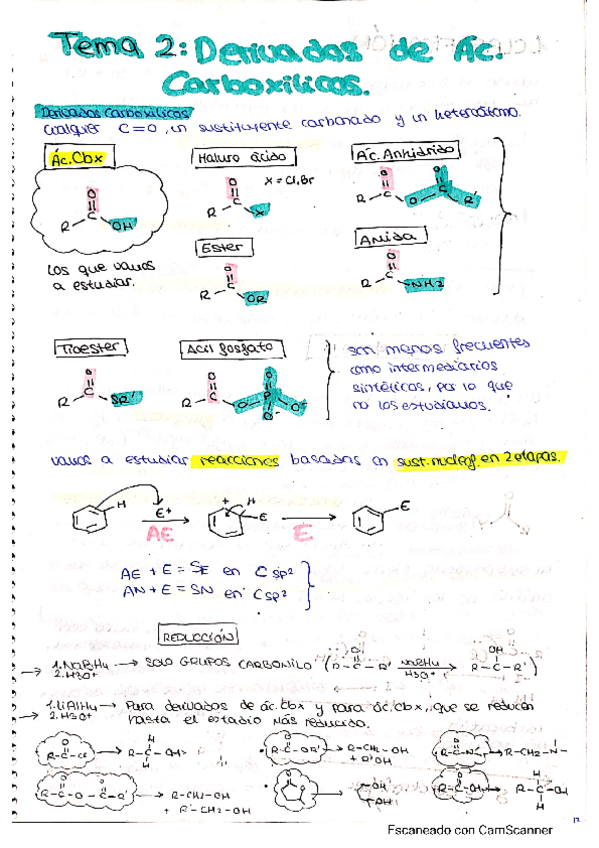 Tema 2: Derivados de Ác.
Carboxílicos.
Derivados carboxílicos
Cualquier C=O, un sustituyente carbonado y un heteroátomo.
Ác. Cbx
Haluro ácido
Ác. Anhídrido
X = Cl, Br
O
R-C-OH
O
R-C-X
O O
R-C-O-C-R'
Los que vamos
a estudiar.
Ester
Amida
O
R-C-OR
O
R-C-NH2
Tioester
Acil fosfato
son menos frecuentes
como intermediarios
sintéticos, por lo que
no los estudiamos.
O
R-C-SR'
Vamos a estudiar reacciones basadas en sust. nucleof. en 2 etapas.
H
E+
AE
+ H
E
E
E
AE + E = SE en Csp2
AN + E = SN en Csp2
REDUCCIÓN
1. NaBH4 → SOLO GRUPOS CARBONILO (R-C-R' NaBH4 H3O+ R-C-R')
2. H3O+
1. LiAlH4 → Para derivados de ác. cbx y para ác. cbx, que se reducen
2. H3O+ hasta el estadio más reducido.
R-C-Cl → R-C-OH
R-C-OR' → R-CH2-OH
+ R'OH
R-C-N → R-CH2-N-
R-C-O-C-R' → R-CH2-OH
+ R'-CH2-OH
OH
OH
R-C-OH → R-C-OH
Escaneado con CamScanner